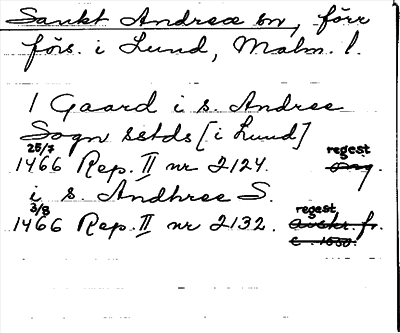 Sankt Andreæ sn, förr
förs. i Lund, Malm. l.
1 Gaard i s. Andree
Sogn sstds [i Lund]
25/7 regest
1466 Rep. II nr 2124. orig.
i s. Andhree S.
3/8 regest
1466 Rep. II nr 2132. avskr. fr.
c. 1600.